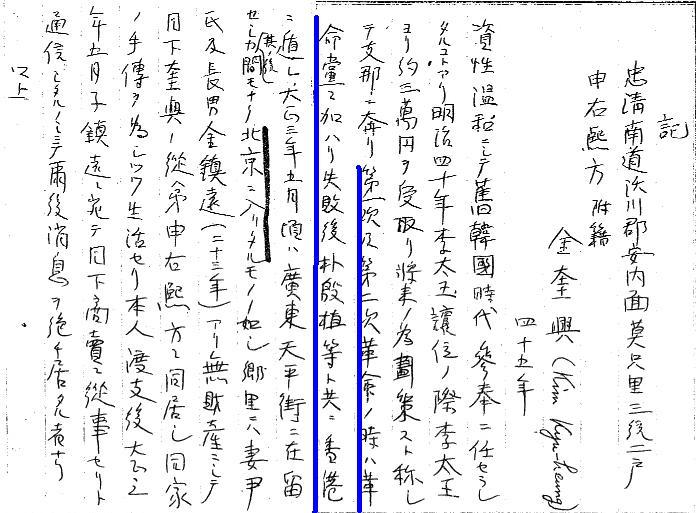 記
忠清南道沃川郡安内面莫只里三統二戸
申右熙方 附籍
金奎興 (Kim Kyu-heung)
四十五年
資性温和ニシテ舊韓國時代參奉ニ任セラレ
タルコトアリ明治四十年李太王讓位ノ際李太王
ヨリ約三萬円ヲ受取リ將来ノ為劃策スト称シ
テ支那ニ奔リ第一次及第二次革命ノ時ハ革
命黨ニ加ハリ失敗後朴殷植等ト共ニ香港
ニ遁レ大正三年五月頃ハ廣東天平街ニ在留
セシカ其ノ後間モナク北京ニ入リタルモノノ如シ郷里ニハ妻尹
氏及長男金鎮遠(二十三年)アリ無財産ニシテ
同下奎興ノ從弟申右熙方ニ同居シ同家
ノ手傳ヲ為シツツ生活セリ本人渡支後大正三
年五月子鎮遠ニ宛テ同下商賣ニ從事セリト
通信シタルノミニテ爾後消息ヲ絶チ居タル者ナリ
以上